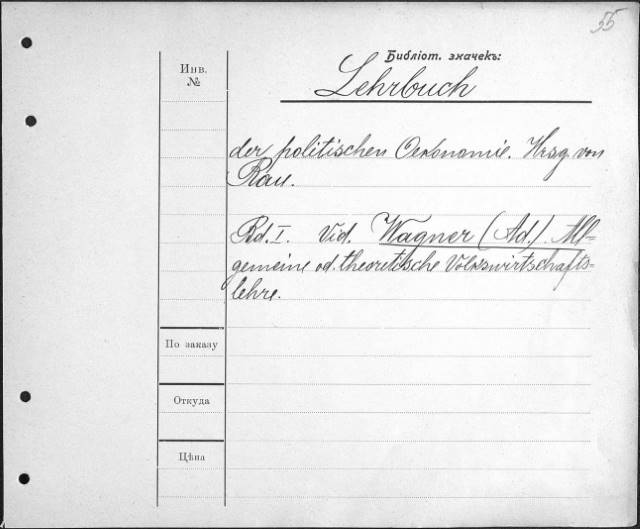 55
Библіот. значекъ:
Инв.
№
Lehrbuch
der politischen Oekonomie. Hrsg. von
Rau.
Bd. I. Vid. Wagner (Ad.). All-
gemeine od. theoretische Volkswirtschafts-
lehre.
По заказу
Откуда
Цѣна